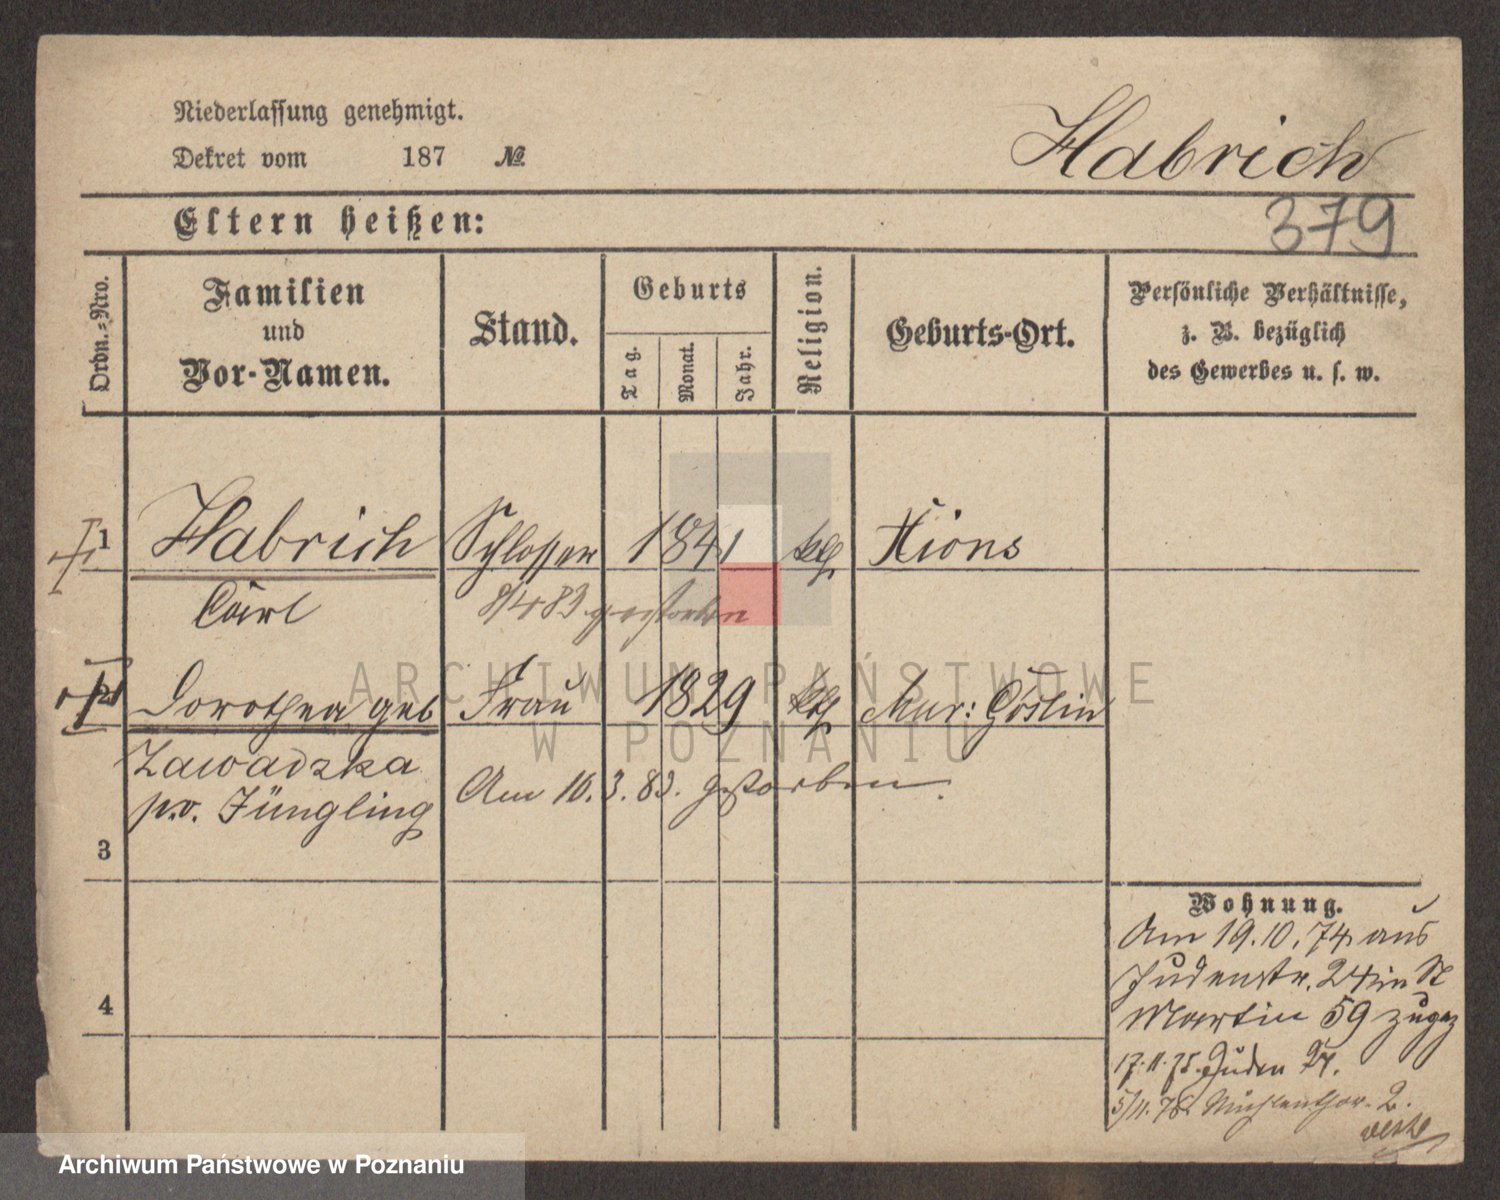 Niederlassung genehmigt.
Dekret vom 187 №
Habrich
Eltern heißen:
379
Ordn.-Nro.
Familien
und
Vor-Namen.
Stand.
Geburts
Tag.
Monat.
Jahr.
Religion.
Geburts-Ort.
Persönliche Verhältnisse,
z. B. bezüglich
des Gewerbes u. s. w.
1 Habrich Schlosser 1841 kth Xions
Carl 8/4 83 gestorben
2 Dorothea geb Frau 1829 kth Mur: Goslin
Zawadzka
p.v. Jüngling Am 16.3.83. gestorben.
3
4
Wohnung.
Am 19.10.74 aus
Judenstr. 24 in St
Martin 59 zugez
17.11.75. Juden
5/11.78. Mühlenthor. 2.
ARCHIWUM PAŃSTWOWE
W POZNANIU
Archiwum Państwowe w Poznaniu